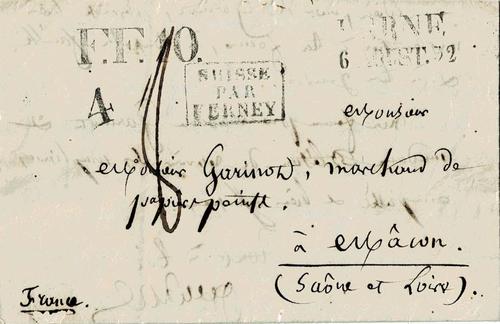 F.F.10.
BERNE
6 AOUST. 32
4
SUISSE
PAR
FERNEY
Monsieur
Monsieur Garinot, marchand de
papiers peints.
à Mâcon.
(Saône et Loire)
France.